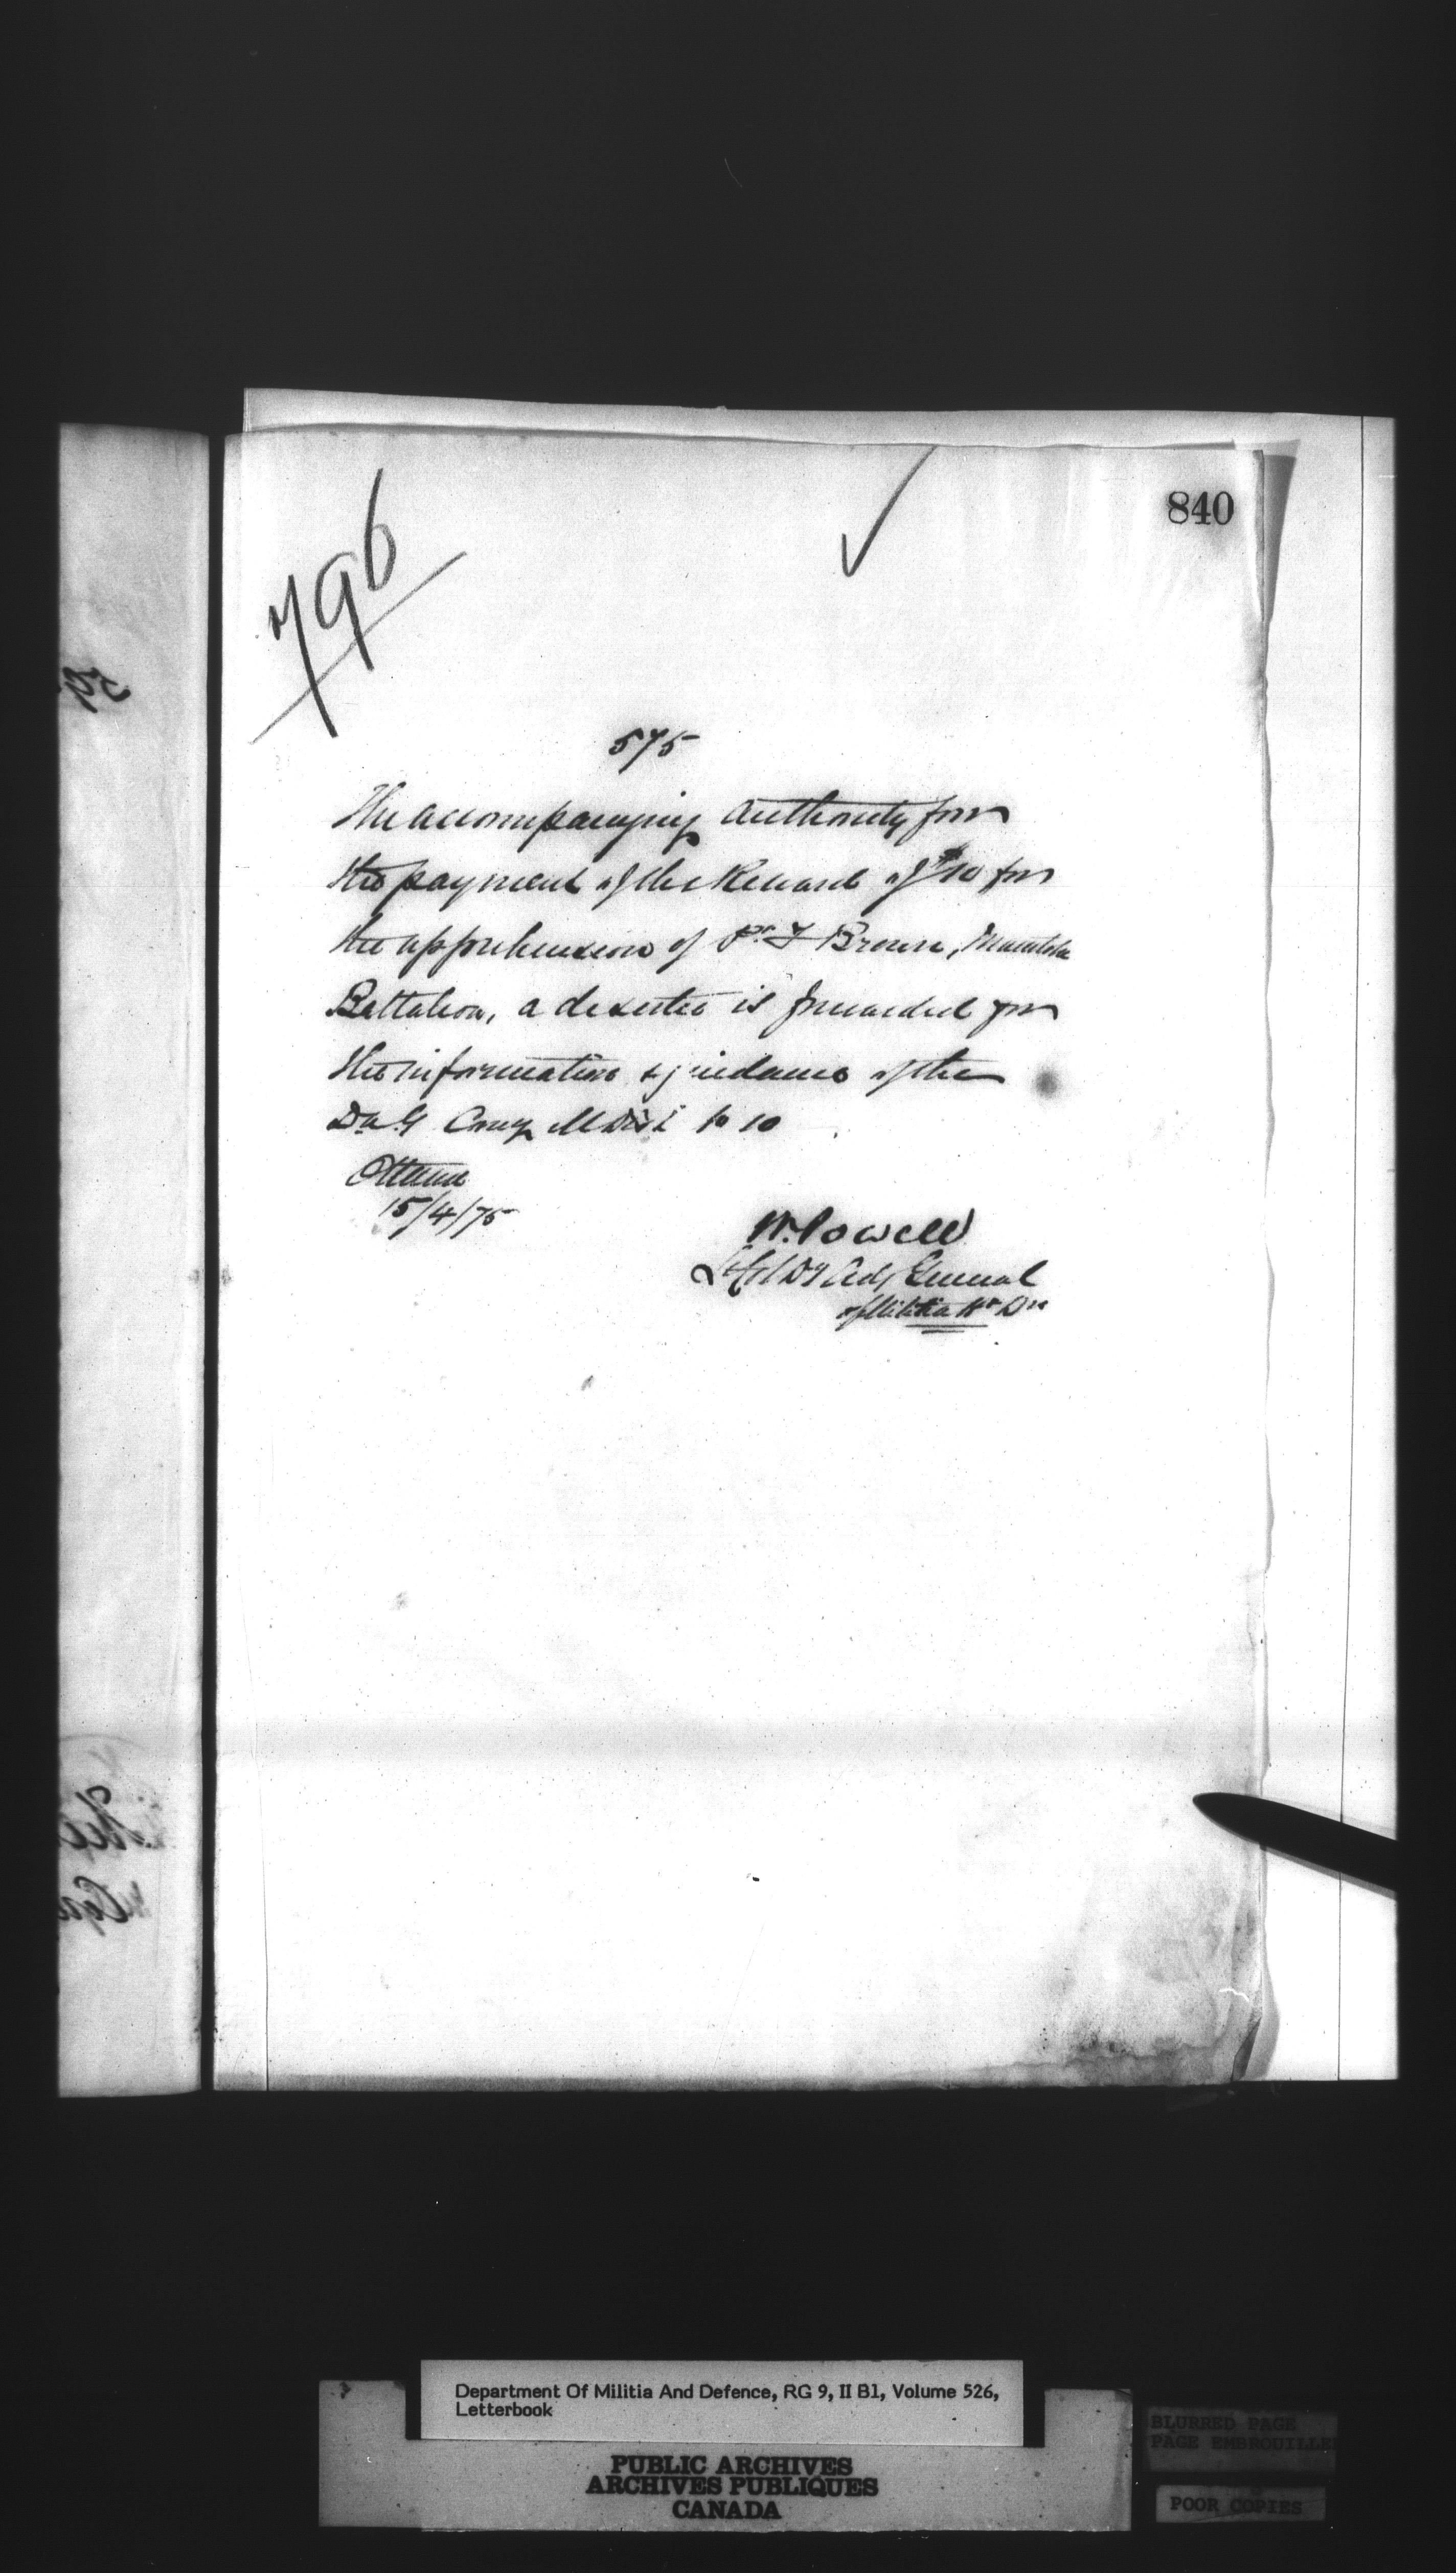 840
796
575
The accompanying authority for
the payment of the Reward of $10 for
the apprehension of Pt. J Brown, Manitoba
Battalion, a deserter is forwarded for
the information & guidance of the
DAG Comg M Dist No 10
Ottawa
15/4/75
W. Powell
Lt Col Dy Adj General
of Militia
Department Of Militia And Defence, RG 9, II B1, Volume 526,
Letterbook
PUBLIC ARCHIVES
ARCHIVES PUBLIQUES
CANADA
BLURRED PAGE
PAGE EMBROUILLE
POOR COPIES